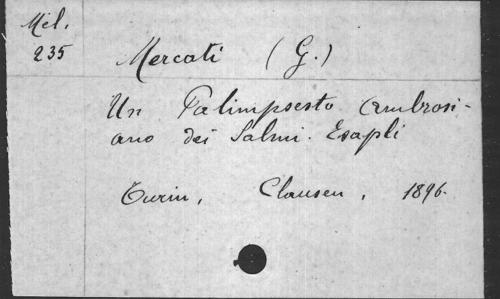 Mél.
235
Mercati (G.)
Un Palimpsesto Ambrosi-
ano dei Salmi. Esapli
Turin, Clausen, 1896.